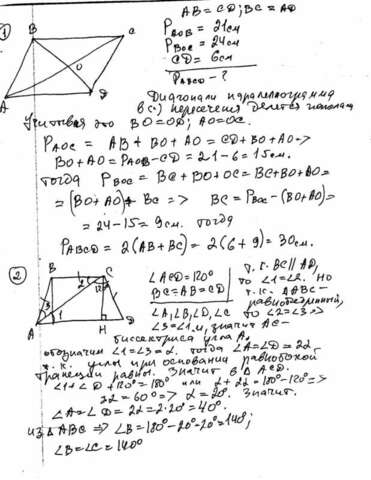 ①
AB = CD; BC = AD
B
C
O
A
D
P AOB = 21см
P BOC = 24см
CD = 6см
P ABCD - ?
Диагонали параллелограмма
в (·) пересечения делятся пополам
Учитывая это BO = OD; AO = OC.
P AOC = AB + BO + AO = CD + BO + AO ->
BO + AO = P AOB - CD = 21 - 6 = 15см.
тогда P BOC = BC + BO + OC = BC + BO + AO =
= (BO + AO) + BC => BC = P BOC - (BO + AO) =
= 24 - 15 = 9см. тогда
P ABCD = 2(AB + BC) = 2(6 + 9) = 30см.
②
B
C
2
3
1
A
H
D
∠ACD = 120°
BC = AB = CD
∠A, ∠B, ∠D, ∠C
т.к. BC || AD,
то ∠1 = ∠2. Но
т.к. △ABC -
равнобедренный,
то ∠2 = ∠3 =>
∠3 = ∠1 и, значит AC -
биссектриса угла A.
обозначим ∠1 = ∠3 = α. тогда ∠A = ∠D = 2α
т.к. углы при основании равнобокой
трапеции равны. Значит в △ACD.
∠1 + ∠D + 120° = 180° или α + 2α = 180° - 120° =>
3α = 60° => α = 20°. Значит.
∠A = ∠D = 2α = 2·20° = 40°.
из △ABC => ∠B = 180° - 20° - 20° = 140°;
∠B = ∠C = 140°